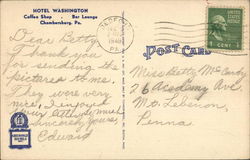 HOTEL WASHINGTON
Coffee Shop · Bar Lounge
Chambersburg, Pa.
Dear Betty
Thank you
for sending the
pictures to me.
They were very
nice, I enjoyed
your very much
Sincerely yours,
Edward
PA.
POST CARD
1 CENT
Miss Betty McCarty
26 Academy Ave
Mt. Lebanon,
Penna